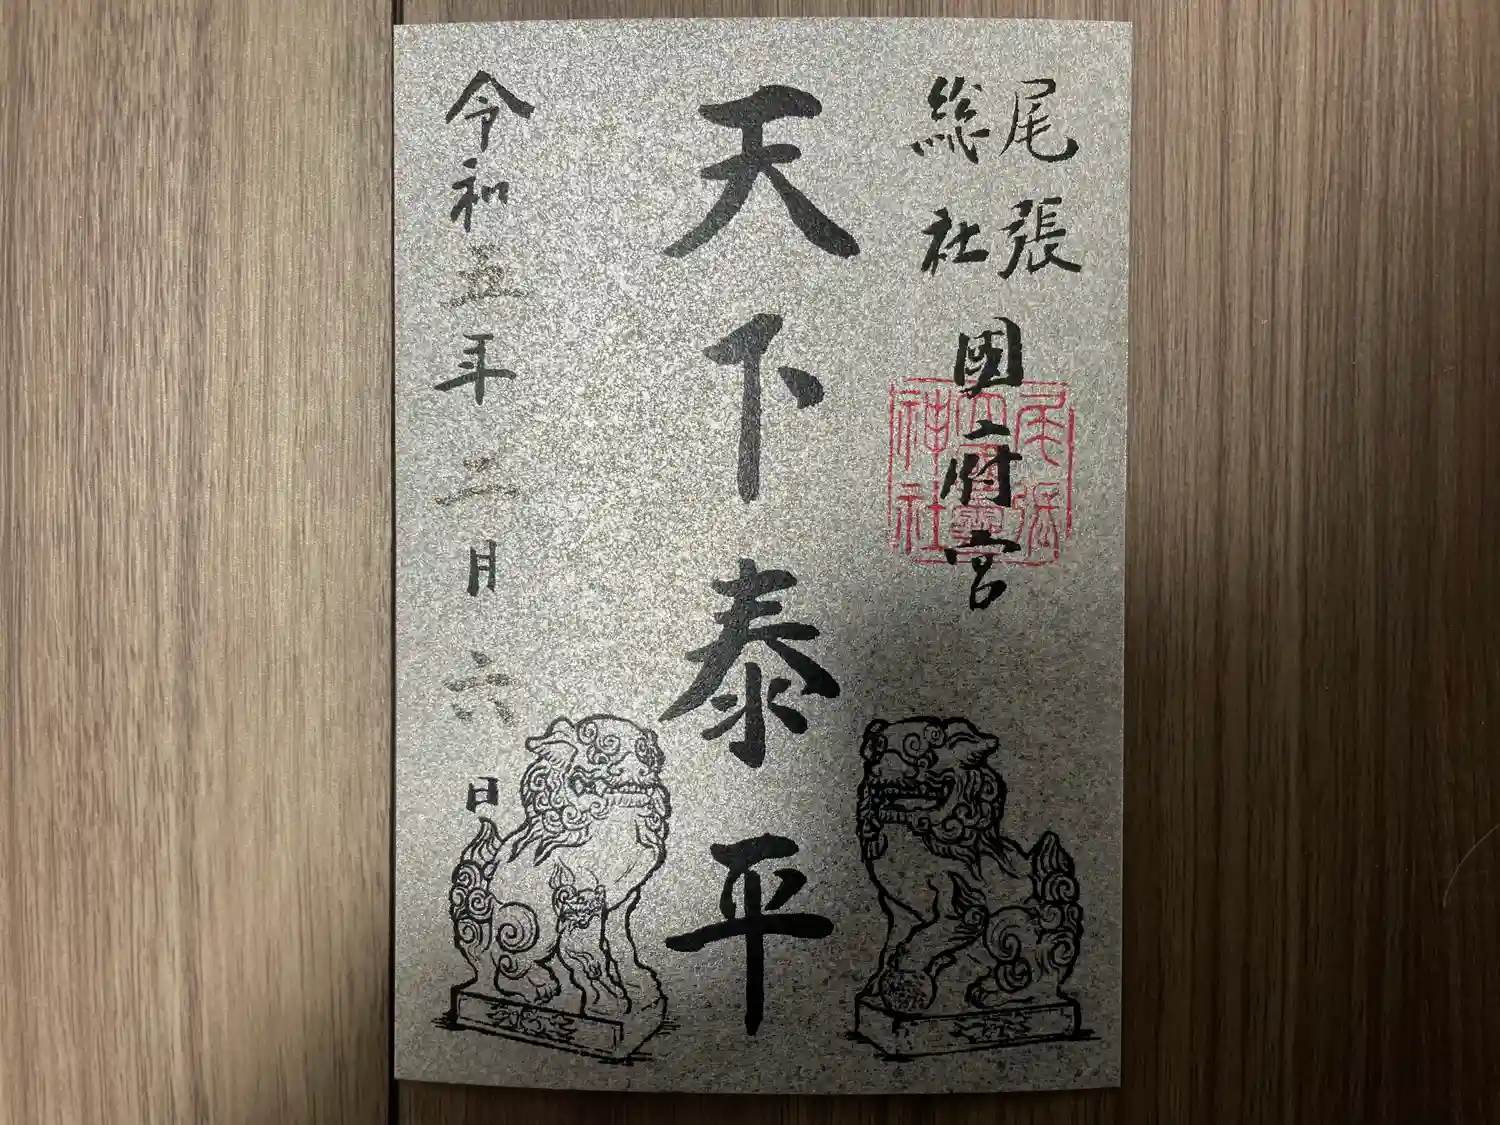 尾張
総社
國府宮
尾張
大國霊
神社
天下泰平
令和五年二月六日